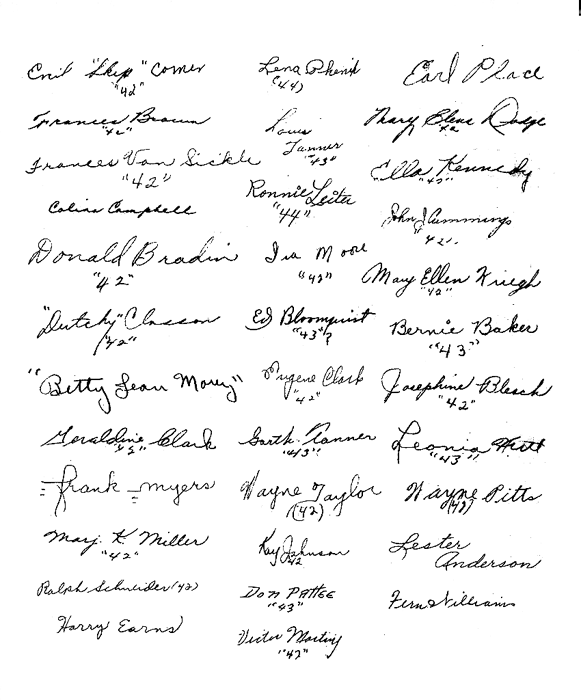 Enid "Skip" Comer
"42"
Frances Brown
"42"
Frances Van Sickle
"42"
Colin Campbell
Donald Bradin
"42"
"Dutchy" Classon
"42"
"Betty Jean Morey"
Geraldine Clark
"42"
Frank Myers
Marj. K Miller
"42"
Ralph Schneider (42)
Harry Earns
Lena
(44)
Louis
Tanner
"43"
Ronnie Leiter
"44"
Ira Moore
"42"
Ed Bloomquist
"43"?
Eugene Clark
"42"
Garth Tanner
"43"
Wayne Taylor
(42)
Kay Johnson
42
Don Pattee
"43"
Victor Martin
"42"
Earl Place
Mary Elene Dodge
42
Ella Kennedy
"42"
John J Cummings
"42"
Mary Ellen Kriegh
"42"
Bernie Baker
"43"
Josephine Blesch
"42"
Leonia
"43"
Wayne Pitts
(43)
Lester
Anderson
Fern Williams